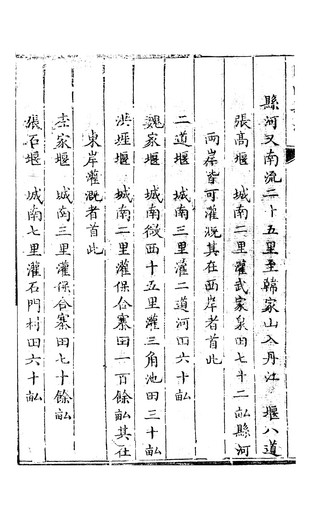 縣河又南流二十五里至韓家山入丹江　堰八道
張高堰　城南二里灌武家泉田七十二畝縣河
兩岸皆可灌溉其在西岸者首此
二道堰　城南三里灌二道河田六十畝
魏家堰　城南微西十五里灌三角池田三十畝
洪埡堰　城南二里灌保合寨田一百餘畝其在
東岸灌溉者首此
李家堰　城南三里灌保合寨田七十餘畝
張石堰　城南七里灌石門村田六十畝